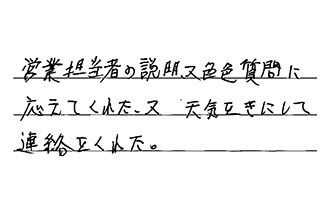 営業担当者の説明、又色色質問に
応えてくれた、又 天気をきにして
連絡をくれた。